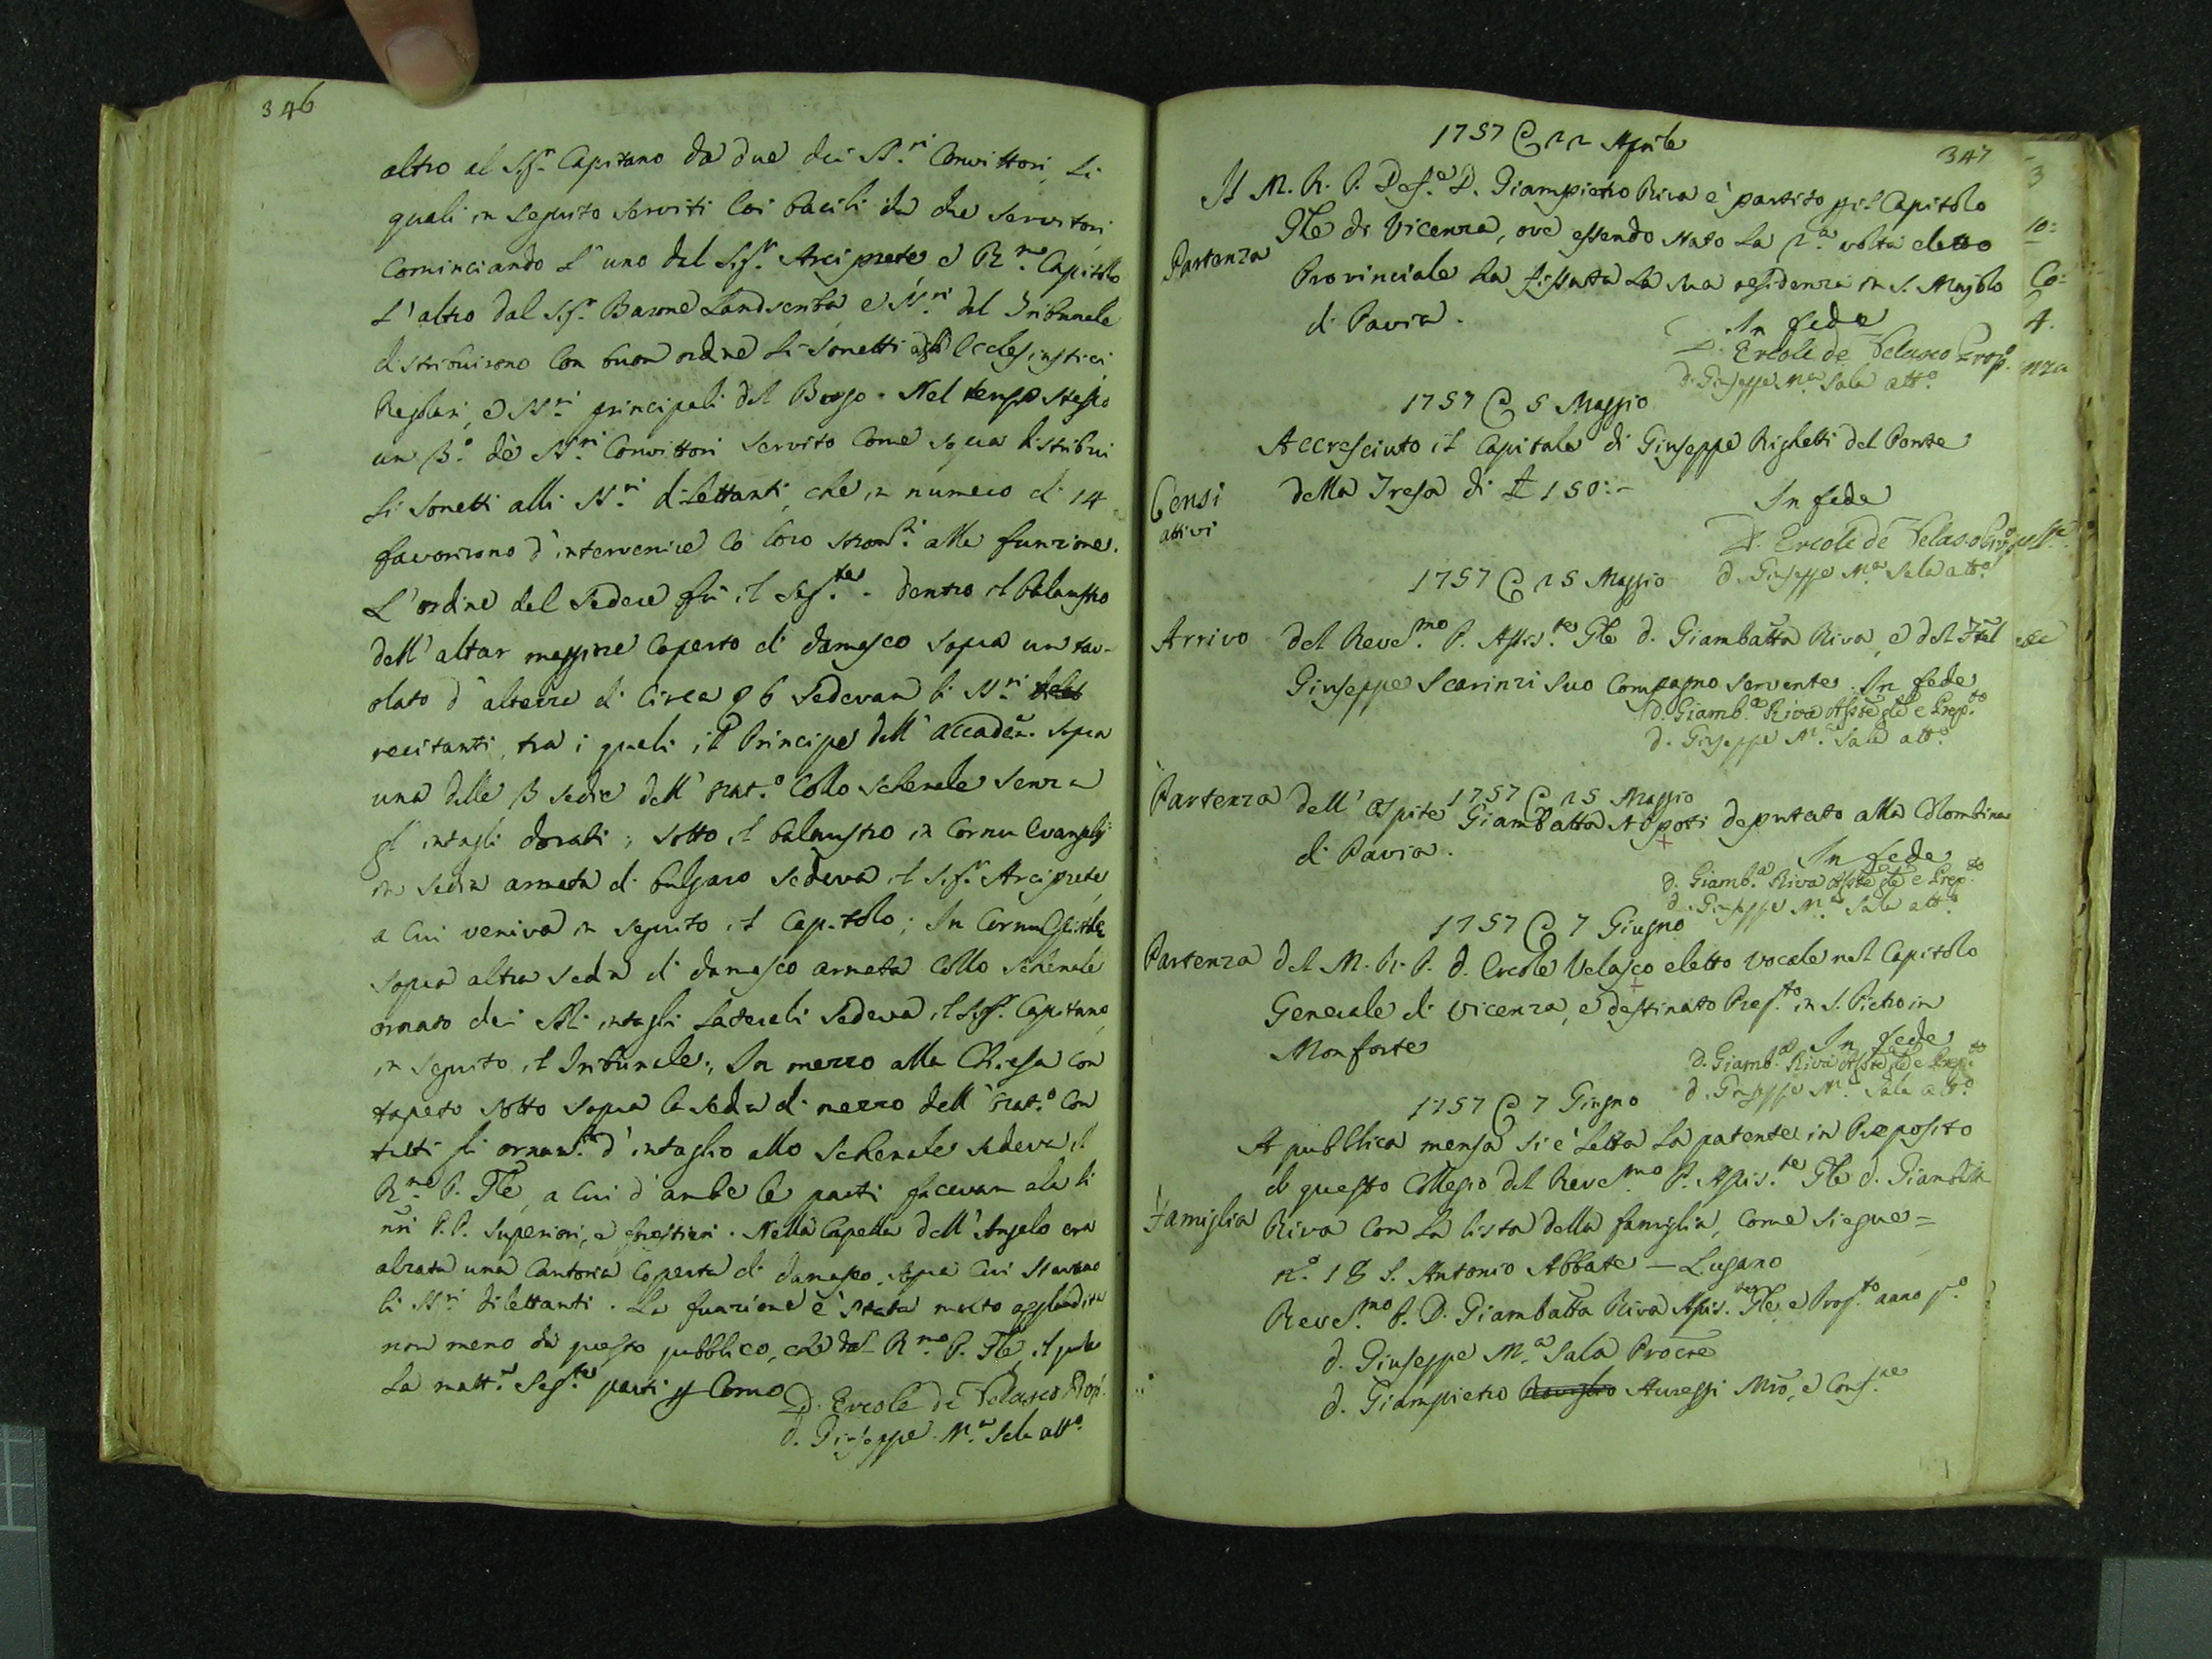 346
altro al Sigr. Capitano da due dei SS.ri Convittori, li
quali in seguito serviti coi bacili da due servitori,
cominciando l'uno dal Sigr. Arciprete, e R.mo Capitolo
l'altro dal Sigr. Barone Landscriba, e SS.ri del Tribunale
distribuirono con buon ordine li Sonetti agli Ecclesiastici,
Regolari, e SS.ri principali del Borgo. Nel tempo stesso
un 3.o de SS.ri Convittori servito come sopra distribui
li Sonetti alli SS.ri dilettanti, che in numero di 14
favorirono d'intervenire co loro strom.ti alla funzione.
L'ordine del sedere fù il seg.te. Dentro il balaustro
dell'altar maggiore coperto di damasco sopra un tav-
olato d'altezza di circa 6 sedevan li SS.ri
recitanti, tra i quali il Principe dell'Accadem. sopra
una delle 3 sedie dell'orat.o collo schenale senza
gl'intagli dorati; sotto il balaustro in cornu Evangelij
in sedia armata di bulgaro sedeva il Sigr. Arciprete,
a cui veniva in seguito il Capitolo; In cornu Epistolæ
sopra altra sedia di damasco armata collo schenale
ornato dei soli intagli laterali sedeva il Sigr. Capitano,
in seguito il Tribunale; In mezzo alla Chiesa con
tapeto sotto sopra la sedia di mezzo dell'orat.o con
tutti gli ornam.ti d'intaglio allo schenale sedeva il
R.mo P. Gle, a cui d'ambe le parti facevan ala li
nri P.P. Superiori, e forestieri. Nella Capella dell'Angelo era
alzata una Cantoria coperta di damasco, sopra cui stavano
li SS.ri dilettanti. La funzione è stata molto applaudita
non meno da questo pubblico, che dal R.mo P. Gle, il quale
la matt.a seg.te parti p Como
D. Ercole de Velasco Prop.
d. Giuseppe M.a Sala att.o
347
1757 @ 22 Aprile
Partenza
Il M. R. P. D. Giampietro Riva è partito pil Capitolo
Gle di Vicenza, ove essendo stato la 2.a volta eletto
Provinciale ha fissata la sua residenza in S. Majolo
di Pavia.
In fede
D. Ercole de Velasco Prop.
d. Giuseppe M.a Sala att.o
1757 @ 5 Maggio
Censi
attivi
Accresciuto il Capitale di Giuseppe Righetti del Ponte
della Tresa di £ 150:-
In fede
D. Ercole de Velasco
d. Giuseppe M.a Sala att.o
1757 @ 25 Maggio
Arrivo
del Rev.mo P. Assis.te Gle d. Giambatta Riva, e del Frel
Giuseppe Scarinzi suo Compagno servente. In fede
d. Giamb.a Riva Asste gle e Prep.to
d. Giuseppe M.a Sala att.o
1757 @ 25 Maggio
Partenza
dell'Ospite Giambatta Stoppoti deputato alla Colombina
di Pavia.
In fede
d. Giamb.a Riva Asste gle e Prep.to
d. Giuseppe M.a Sala att.o
1757 @ 7 Giugno
Partenza
del M. R. P. d. Ercole Velasco eletto Vocale nel Capitolo
Generale di Vicenza, e destinato Prep.to in S. Pietro in
Monforte
In fede
d. Giamb.a Riva Asste gle e Prep.to
d. Giuseppe M.a Sala att.o
1757 @ 7 Giugno
Famiglia
A pubblica mensa si è letta la patente in Preposito
di questo Collegio del Rev.mo P. Assis.te Gle d. Giambatta
Riva con la lista della famiglia, come siegue =
n.o 18 S. Antonio Abbate - Lugano
Rev.mo P. D. Giambatta Riva Assis.te Gle e Prep.to anno p.o
d. Giuseppe M.a Sala Procre
d. Giampietro Aureggi Mro, e Conf.re